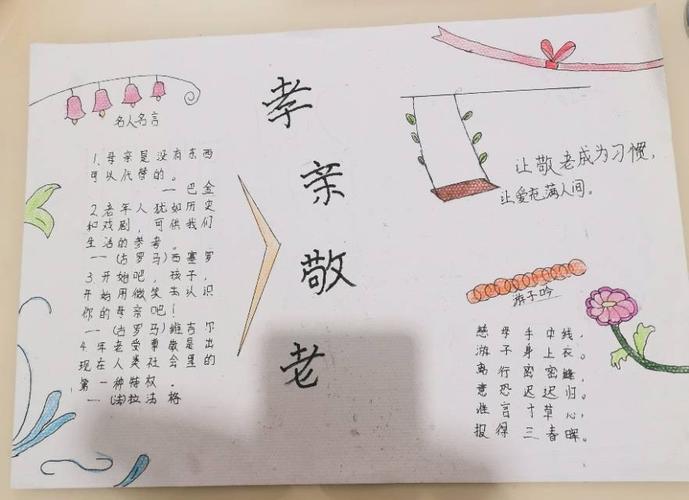 名人名言
1.母亲是没有东西
可以代替的。
— 巴金
2.老年人犹如历史
和戏剧，可供我们
生活的参考。
—(古罗马)西塞罗
3.开始吧，孩子，
开始用微笑去认识
你的母亲吧！
—(古罗马)维吉尔
4.年老受尊敬是出
现在人类社会里的
第一种特权.
—(法)拉法格
孝亲敬老
让敬老成为习惯，
让爱充满人间。
游子吟
慈母手中线，
游子身上衣。
临行密密缝，
意恐迟迟归。
谁言寸草心，
报得三春晖。